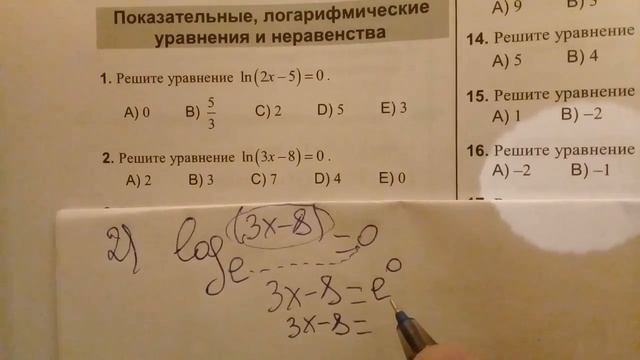 Показательные, логарифмические
уравнения и неравенства
1. Решите уравнение ln(2x−5)=0.
A) 0 B) 5/3 C) 2 D) 5 E) 3
2. Решите уравнение ln(3x−8)=0.
A) 2 B) 3 C) 7 D) 4 E) 0
A) 9 B) 3
14. Решите уравнение
A) 5 B) 4
15. Решите уравнение
A) 1 B) −2
16. Решите уравнение
A) −2 B) −1
2) log_e(3x−8)=0
3x−8=e^0
3x−8=